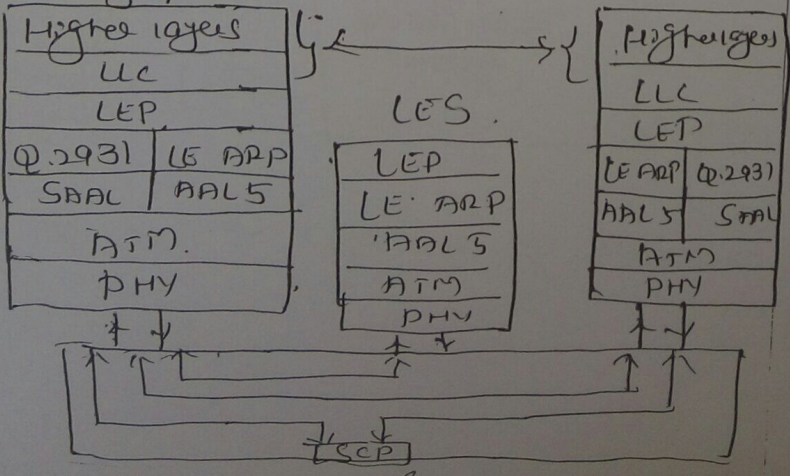 Higher layers
LLC
LEP
Q.2931 LE ARP
SAAL AAL 5
ATM.
PHY
LES.
LEP
LE ARP
AAL 5
ATM
PHY
Higher layers
LLC
LEP
LE ARP Q.2931
AAL 5 SAAL
ATM
PHY
SCP